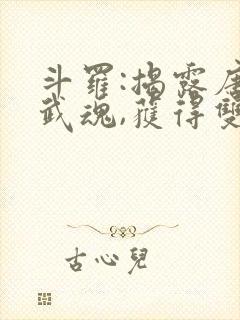 斗羅:揭露唐
武魂,獲得雙
古心兒